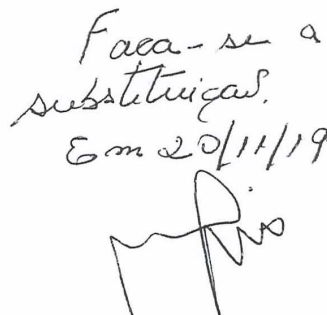 Faca-se a
substituição.
Em 20/11/19